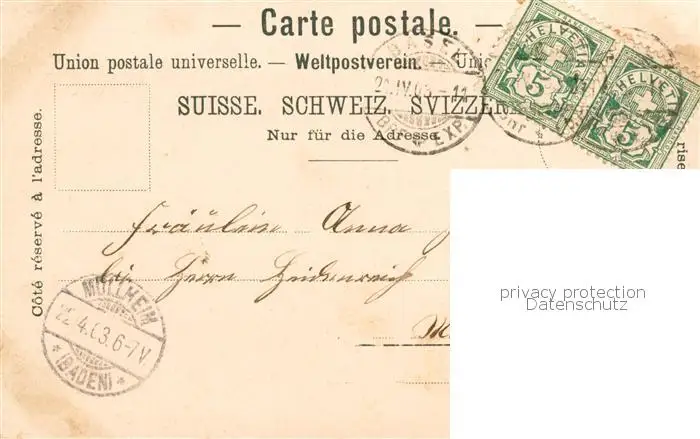 — Carte postale. —
Union postale universelle. — Weltpostverein. — Unio
SUISSE. SCHWEIZ. SVIZZERA
Nur für die Adresse.
Côté réservé à l'adresse.
HELVETIA
5
HELVETIA
5
BASEL
BRF. EXP.
Fräulein Anna
bei Herrn Heidenreich
M
MÜLLHEIM
22.4.03.6-7V.
* (BADEN) *
privacy protection
Datenschutz